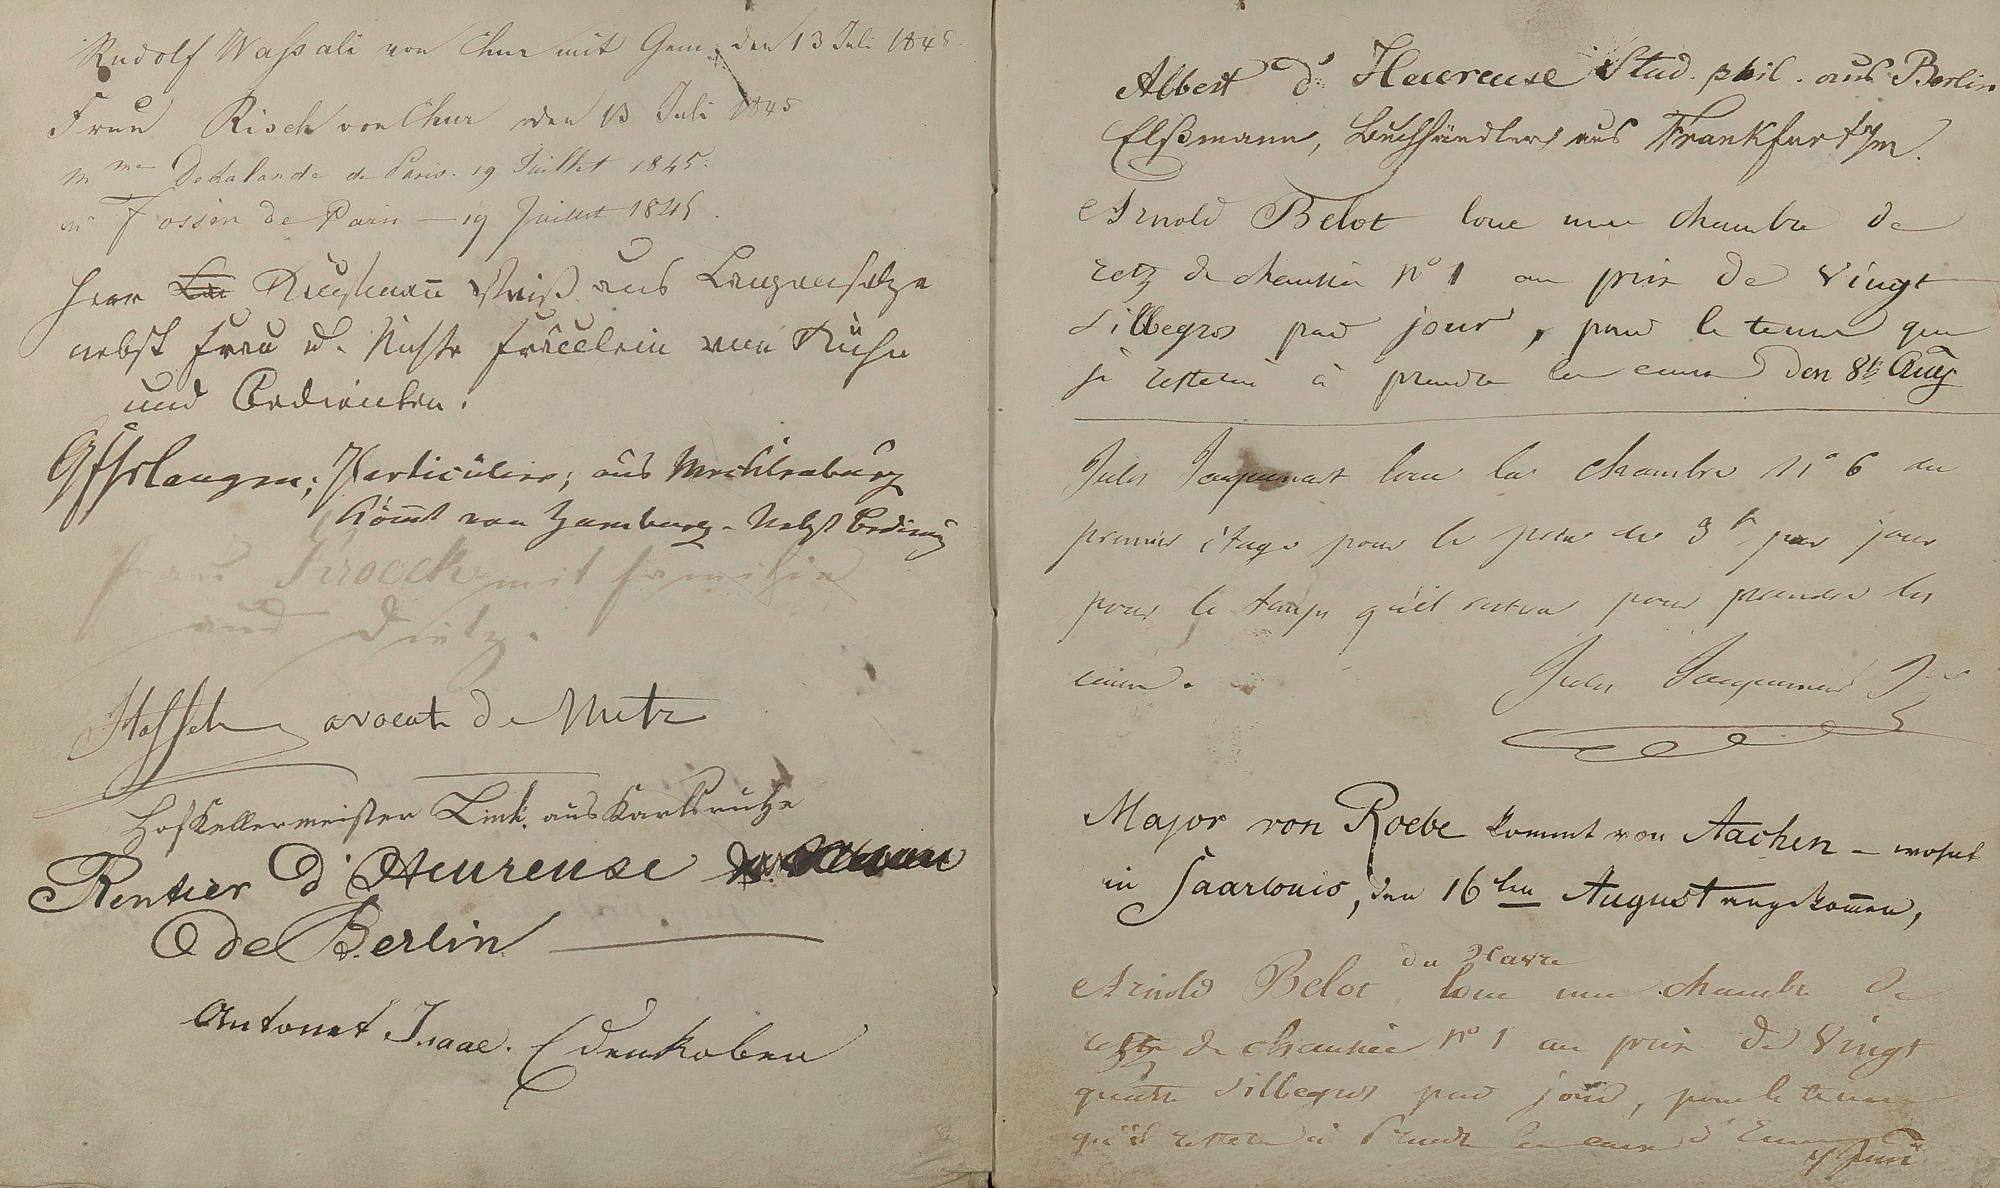 Rudolf Wassali von Chur mit Gem. den 13 Juli 1845.
Frau Risch von Chur den 13 Juli 1845
Mme Delalande de Paris. 19 Juillet 1845.
Mr Fossin de Paris — 19 Juillet 1845.
Herr Kaufmann Weiß aus Langensalza
nebst Frau u. Nichte Fräulein von
und Bedienten.
Particulier; aus Mecklenburg
kömt von Hamburg - Nebst Bedinung
Frau Kroeck mit Familie
aus Dietz.
avocat de Metz
Hofkellermeister Link. aus Karlsruhe
Rentier d'Heureuse
de Berlin
Antonet Isaac. Edenkoben
Albert d'Heureuse Stud. phil. aus Berlin
Elßmann, Buchhändler aus Frankfurt a/m.
Arnold Belot loue une chambre de
retz de chaussée no 1 au prix de vingt
silbegros par jour, pour le tems que
je resterai à prendre les eaux den 8t Aug
Jules Jacquemart loue la chambre no 6 au
premier étage pour le prix de 3 fr par jour
pour le temps qu'il restera pour prendre les
eaux.
Jules Jacquemart Jne
Major von Roebe kommt von Aachen – wohnt
in Saarlouis, den 16ten August angekommen,
du Havre
Arnold Belot loue une chambre de
retz de chaussée no 1 au prix de vingt
quatre silbegros par jour, pour le tems
qu'il restera à prendre les eaux d'Ems